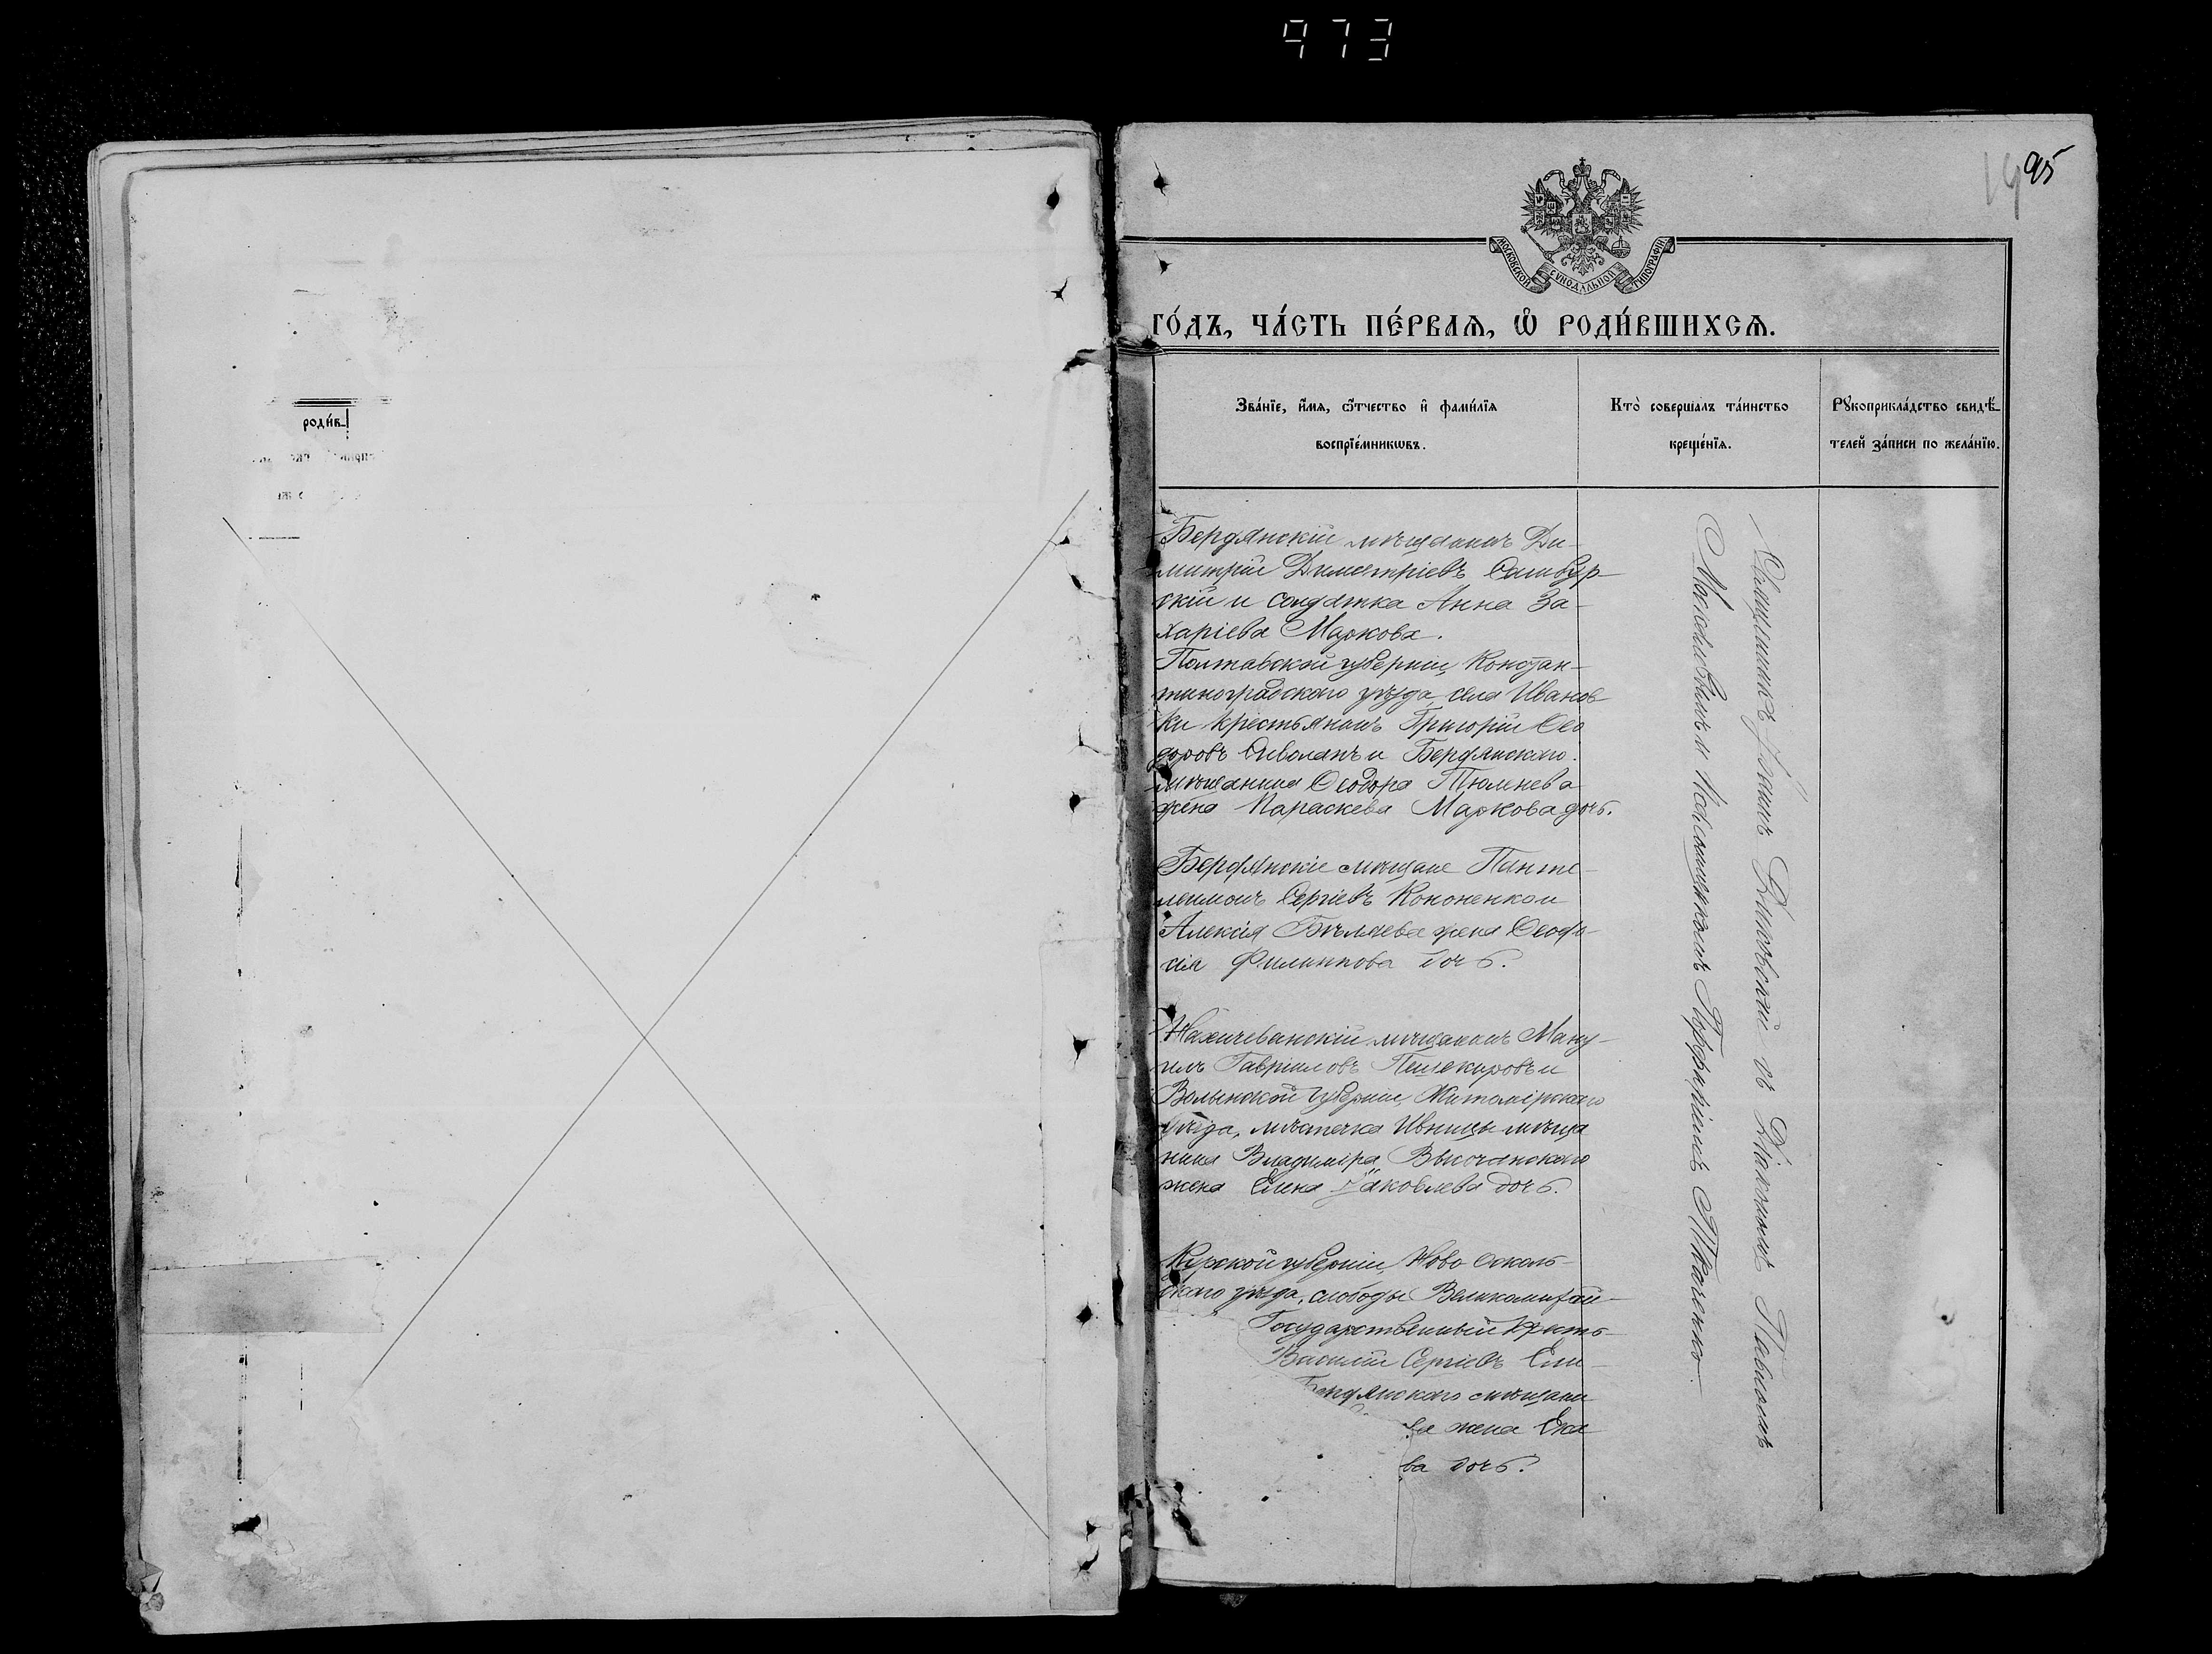 973
95
МОСКОВСКОЙ СѴНОДАЛЬНОЙ ТИПОГРАФІИ
ГО́ДЪ, ЧА́СТЬ ПЕ́РВАѦ, Ѽ РОДИ́ВШИХСѦ.
Зва́нїе, и҆́мѧ, ѻ҆́тчество и҆ фамі́лїѧ
воспрїе́мникѡвъ.
Кто̀ соверша́лъ та́инство
креще́нїѧ.
Рꙋкоприкла́дство свидѣ́-
телей за́писи по жела́нїю.
роди́в
Бердянскій мѣщанинъ Ди-
митрій Димитріевъ Самбур-
скій и солдатка Анна За-
харіева Маркова.
Полтавской губерніи, Констан-
тиноградскаго уѣзда села Иванов-
ки крестьянинъ Григорій Ѳео
доровъ и Бердянскаго
мѣщанина Ѳеодора Тюленева
жена Параскева Маркова дочь.
Бердянскіе мѣщане Панте-
леимонъ Сергіевъ Кононенко и
Алексія Бѣляева жена Ѳеодо-
сія Филиппова дочь.
Нахичеванскій мѣщанинъ Ману-
илъ Гавриловъ и
Волынской губерніи, Житомірскаго
уѣзда, мѣстечка Ивницы мѣща
нина Владиміра Височанскаго
жена Елена Іаковлева дочь.
Курской губерніи, Ново Осколь-
скаго уѣзда, слободы Великомихай-
Государственный крест
Василій Сергіевъ Ели-
Бердянскаго мѣщани
ва жена Ека
ва дочь.
Священникъ Іоаннъ съ Діакономъ Павломъ
и Псаломщикомъ Порфиріемъ Ткаченко.